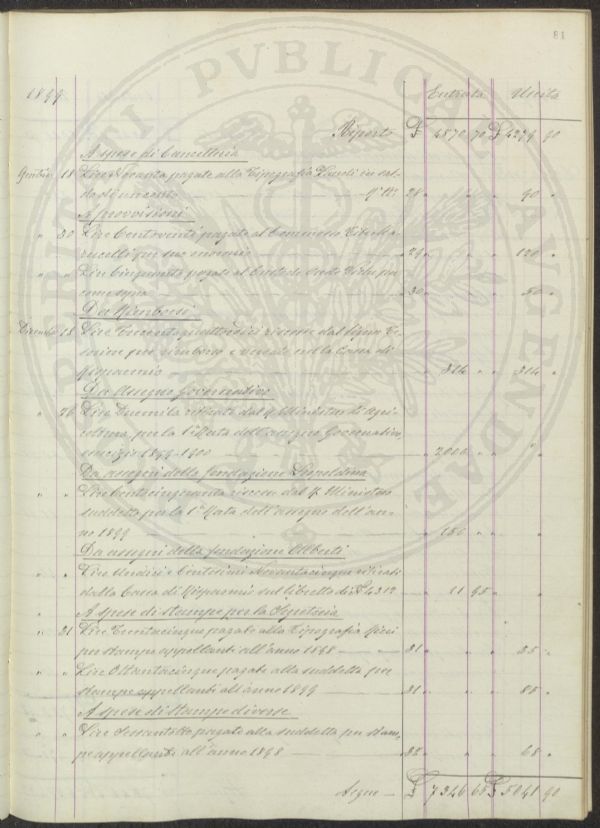 81
1899
Entrata Uscita
Riporto £ 4870 70 £ 4279 90
A spese di Cancelleria
18 Lire Novanta pagate alla Tipografia in sal-
do di un conto 28 " 90 "
A provvisioni
" 30 Lire Centoventi pagate al Commesso
per sua 29 " 120 "
" " Lire Cinquanta pagate al Custode
come sopra 30 " 50 "
Da Rimborsi
18 Lire Trecentoquattordici riscosse dal Signor
per rimborso e versate nella Cassa di
Risparmio 314 " " 314 "
Da Assegno Governativo
" 26 Lire Duemila ritirate dal R. Ministero di Agri-
coltura per la 1ª Rata dell'assegno Governativo,
esercizio 1899-1900 2000 " " "
Da assegni della fondazione Leopoldina
" " Lire Centocinquanta riscosse dal R. Ministero
suddetto per la 1ª Rata dell'assegno dell'an-
no 1899 150 " " "
Da assegni della fondazione Alberti
" " Lire Undici e Centesimi Novantacinque ritirati
dalla Cassa di Risparmio sul libretto di № 4312 11 95 "
A spese di stampe per la Segreteria
" 31 Lire Trentacinque pagate alla Tipografia Ricci
per stampe appellanti all'anno 1898 31 " 35 "
" " Lire Ottantacinque pagate alla suddetta per
stampe appellanti all'anno 1899 31 " 85 "
A spese di stampe diverse
" " Lire Sessantotto pagate alla suddetta per stam-
pe appellanti all'anno 1898 32 " 68 "
Segue £ 7346 65 £ 5041 90